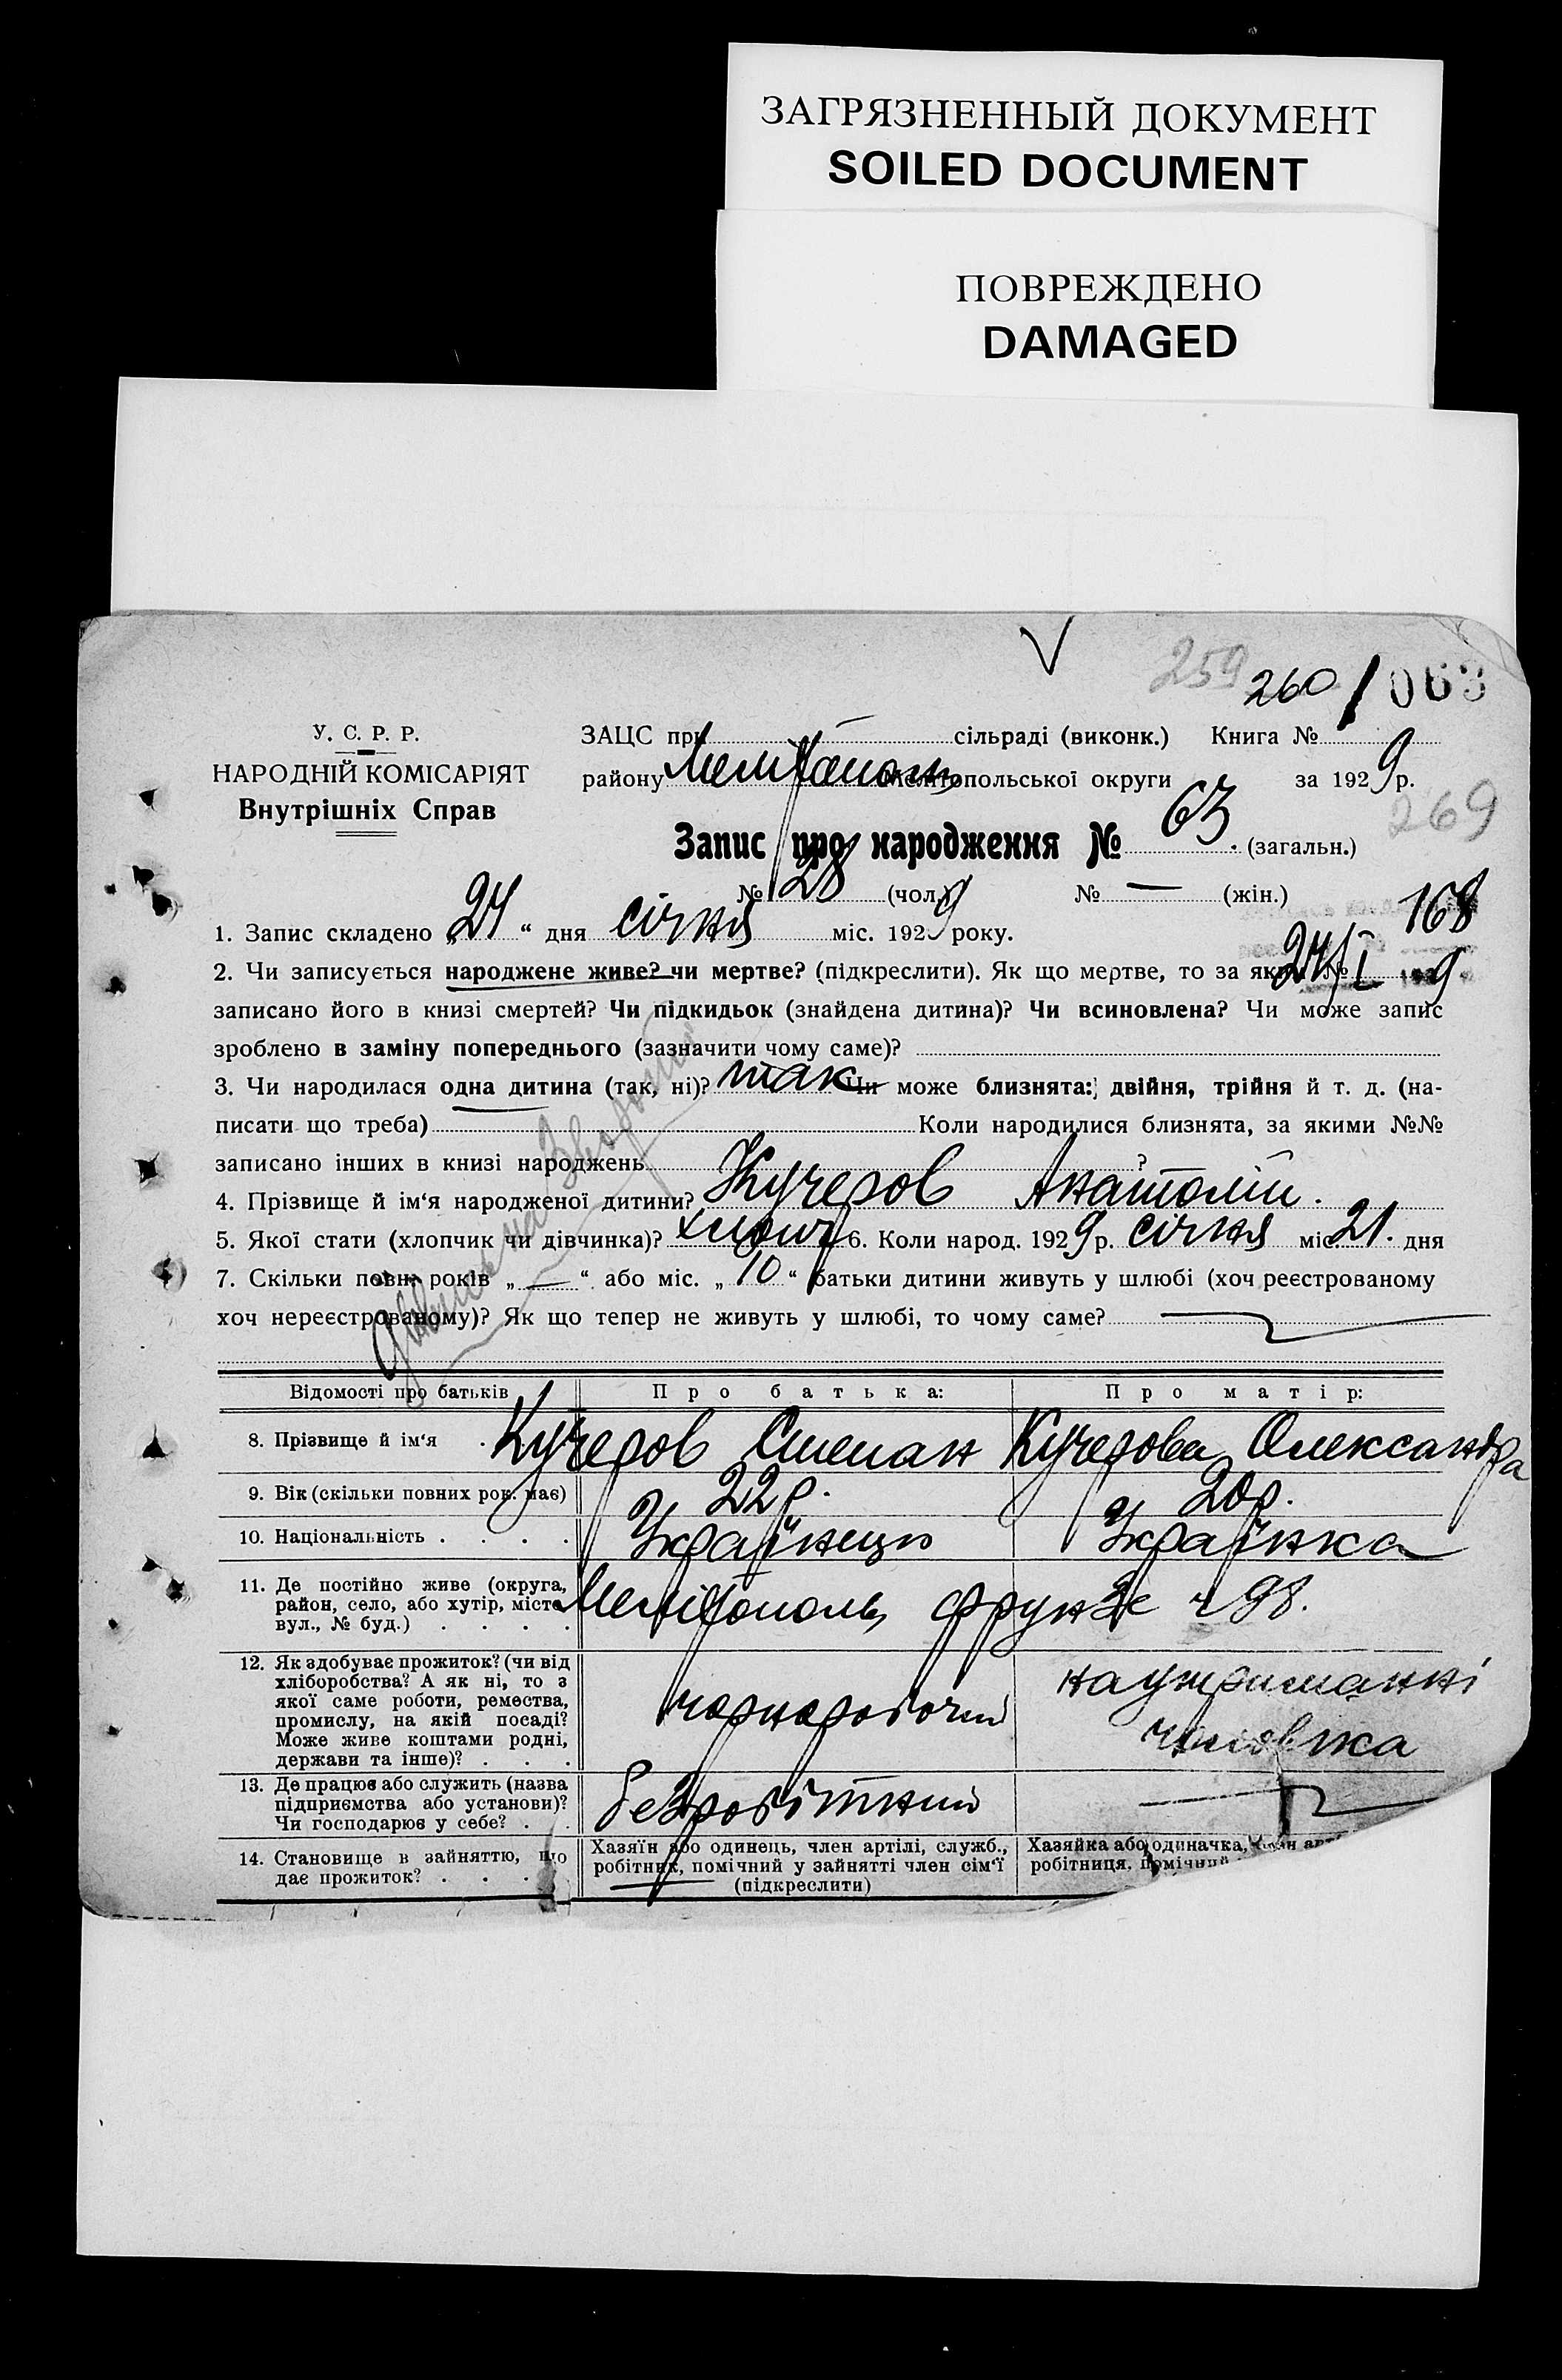 ЗАГРЯЗНЕННЫЙ ДОКУМЕНТ
SOILED DOCUMENT
ПОВРЕЖДЕНО
DAMAGED
V
259 260 / 063
У. С. Р. Р.
НАРОДНІЙ КОМІСАРІЯТ
Внутрішніх Справ
ЗАЦС при сільраді (виконк.) Книга №
району Мелітополь Мелітопольської округи за 1929 р.
269
Запис про народження № 63. (загальн.)
№ 28 (чол.) № — (жін.)
168
1. Запис складено „24“ дня січня міс. 1929 року.
24/I 9
2. Чи записується народжене живе? чи мертве? (підкреслити). Як що мертве, то за яким №
записано його в книзі смертей? Чи підкидьок (знайдена дитина)? Чи всиновлена? Чи може запис
зроблено в заміну попереднього (зазначити чому саме)?
3. Чи народилася одна дитина (так, ні)? так Чи може близнята: двійня, трійня й т. д. (на-
писати що треба) Коли народилися близнята, за якими №№
записано інших в книзі народжень ?
4. Прізвище й ім‘я народженої дитини? Кучеров Анатолій.
5. Якої стати (хлопчик чи дівчинка)? хлопч 6. Коли народ. 1929 р. січня міс. 21. дня
7. Скільки повн. років „—“ або міс. „10“ батьки дитини живуть у шлюбі (хоч реєстрованому
хоч нереєстрованому)? Як що тепер не живуть у шлюбі, то чому саме?
Відомості про батьків Про батька: Про матір:
8. Прізвище й ім‘я . Кучеров Степан Кучерова Олександра
9. Вік (скільки повних рок. має) 22 р. 20 р.
10. Національність . . . . Українець Українка
11. Де постійно живе (округа,
район, село, або хутір, місто
вул., № буд.) . . . . Мелітополь Фрунзе ч 98.
12. Як здобуває прожиток? (чи від
хліборобства? А як ні, то з
якої саме роботи, ремества,
промислу, на якій посаді?
Може живе коштами родні,
держави та інше)? . . . чорноробочий на утриманні чоловіка
13. Де працює або служить (назва
підприємства або установи)?
Чи господарює у себе? . . безробітний
14. Становище в зайняттю, що
дає прожиток? . . . .
Хазяїн або одинець, член артілі, служб.,
робітник, помічний у зайнятті член сім‘ї
(підкреслити)
Хазяйка або одиначка,
робітниця,